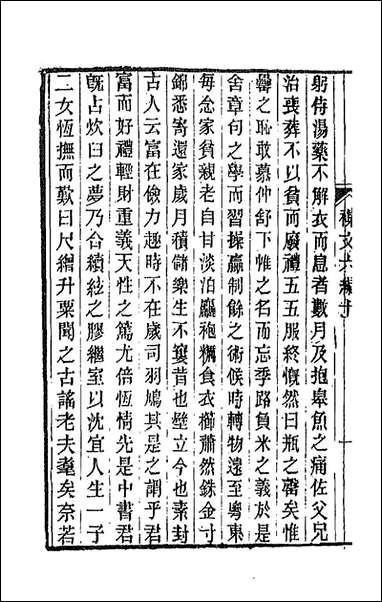 躬侍湯藥不解衣而息者數月及抱皋魚之痛佐父兄
治喪葬不以貧而廢禮五五服終慨然曰瓶之罄矣惟
罍之恥敢慕仲舒下帷之名而忘季路負米之義於是
舍章句之學而習操贏制餘之術候時轉物遠至粵東
每念家貧親老自甘淡泊麤袍糲食衣櫛蕭然銖金寸
錦悉寄還家歲月積儲樂生不窶昔也壁立今也素封
古人云富在儉力趨時不在歲司羽鳩其是之謂乎君
富而好禮輕財重義天性之篤尤倍恆情先是中書君
既占炊臼之夢乃合續絃之膠繼室以沈宜人生一子
二女恆撫而歎曰尺繒升粟聞之古謠老夫耄矣奈若